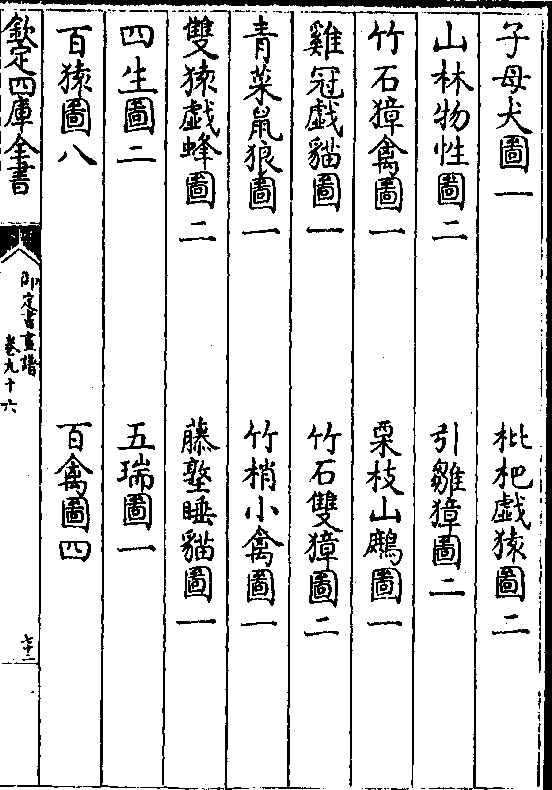 子母犬圖一　枇杷戯猿圖二
山林物性圖二　引雛獐圖二
竹石獐禽圖一　栗枝山鷓圖一
雞冠戯貓圖一　竹石雙獐圖二
青菜鼠狼圖一　竹梢小禽圖一
雙猿戯蜂圖二　藤墪睡貓圖一
四生圖二　五瑞圖一
百猿圖八　百禽圖四
欽定四庫全書
御定書畫譜
卷九十六